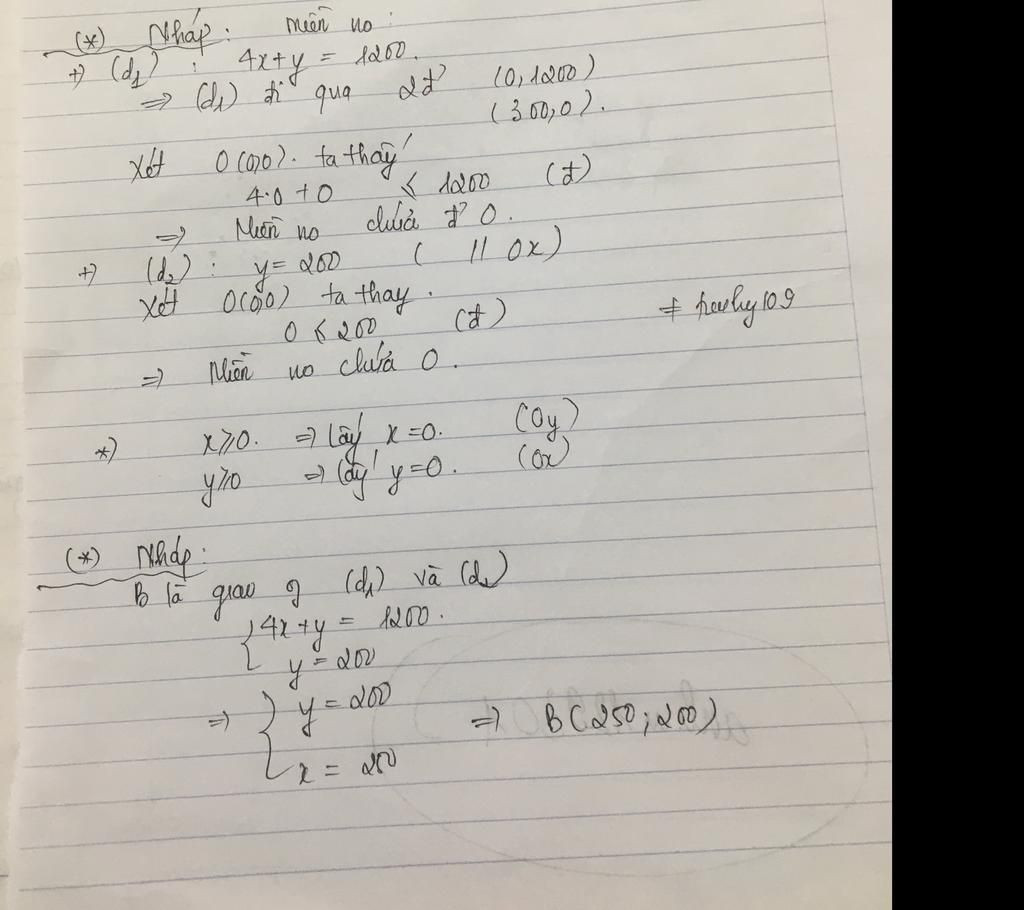 (*) Nháp: Miền no:
+) (d1) : 4x+y = 1200.
=> (d1) đi qua 2đ' (0,1200)
(300,0).
Xét O(0,0). ta thấy
4.0 + 0 ≤ 1200 (đ)
=> Miền no chứa đ' O.
+) (d2) : y = 200 ( // Ox)
Xét O(0,0) ta thay.
0 ≤ 200 (đ)
=> Miền no chứa O.
*) x≥0. => lấy x=0. (Oy)
y≥0 => lấy y=0. (Ox)
(*) Nháp:
B là giao của (d1) và (d2)
{ 4x+y = 1200.
y = 200
=> { y = 200
x = 250
=> B(250; 200)